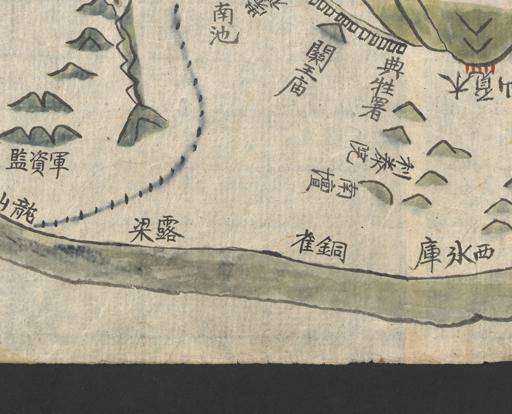 南池
關王庙
典牲署
木覓山
利泰院
南壇
軍資監
龍山
露梁
銅雀
西氷庫